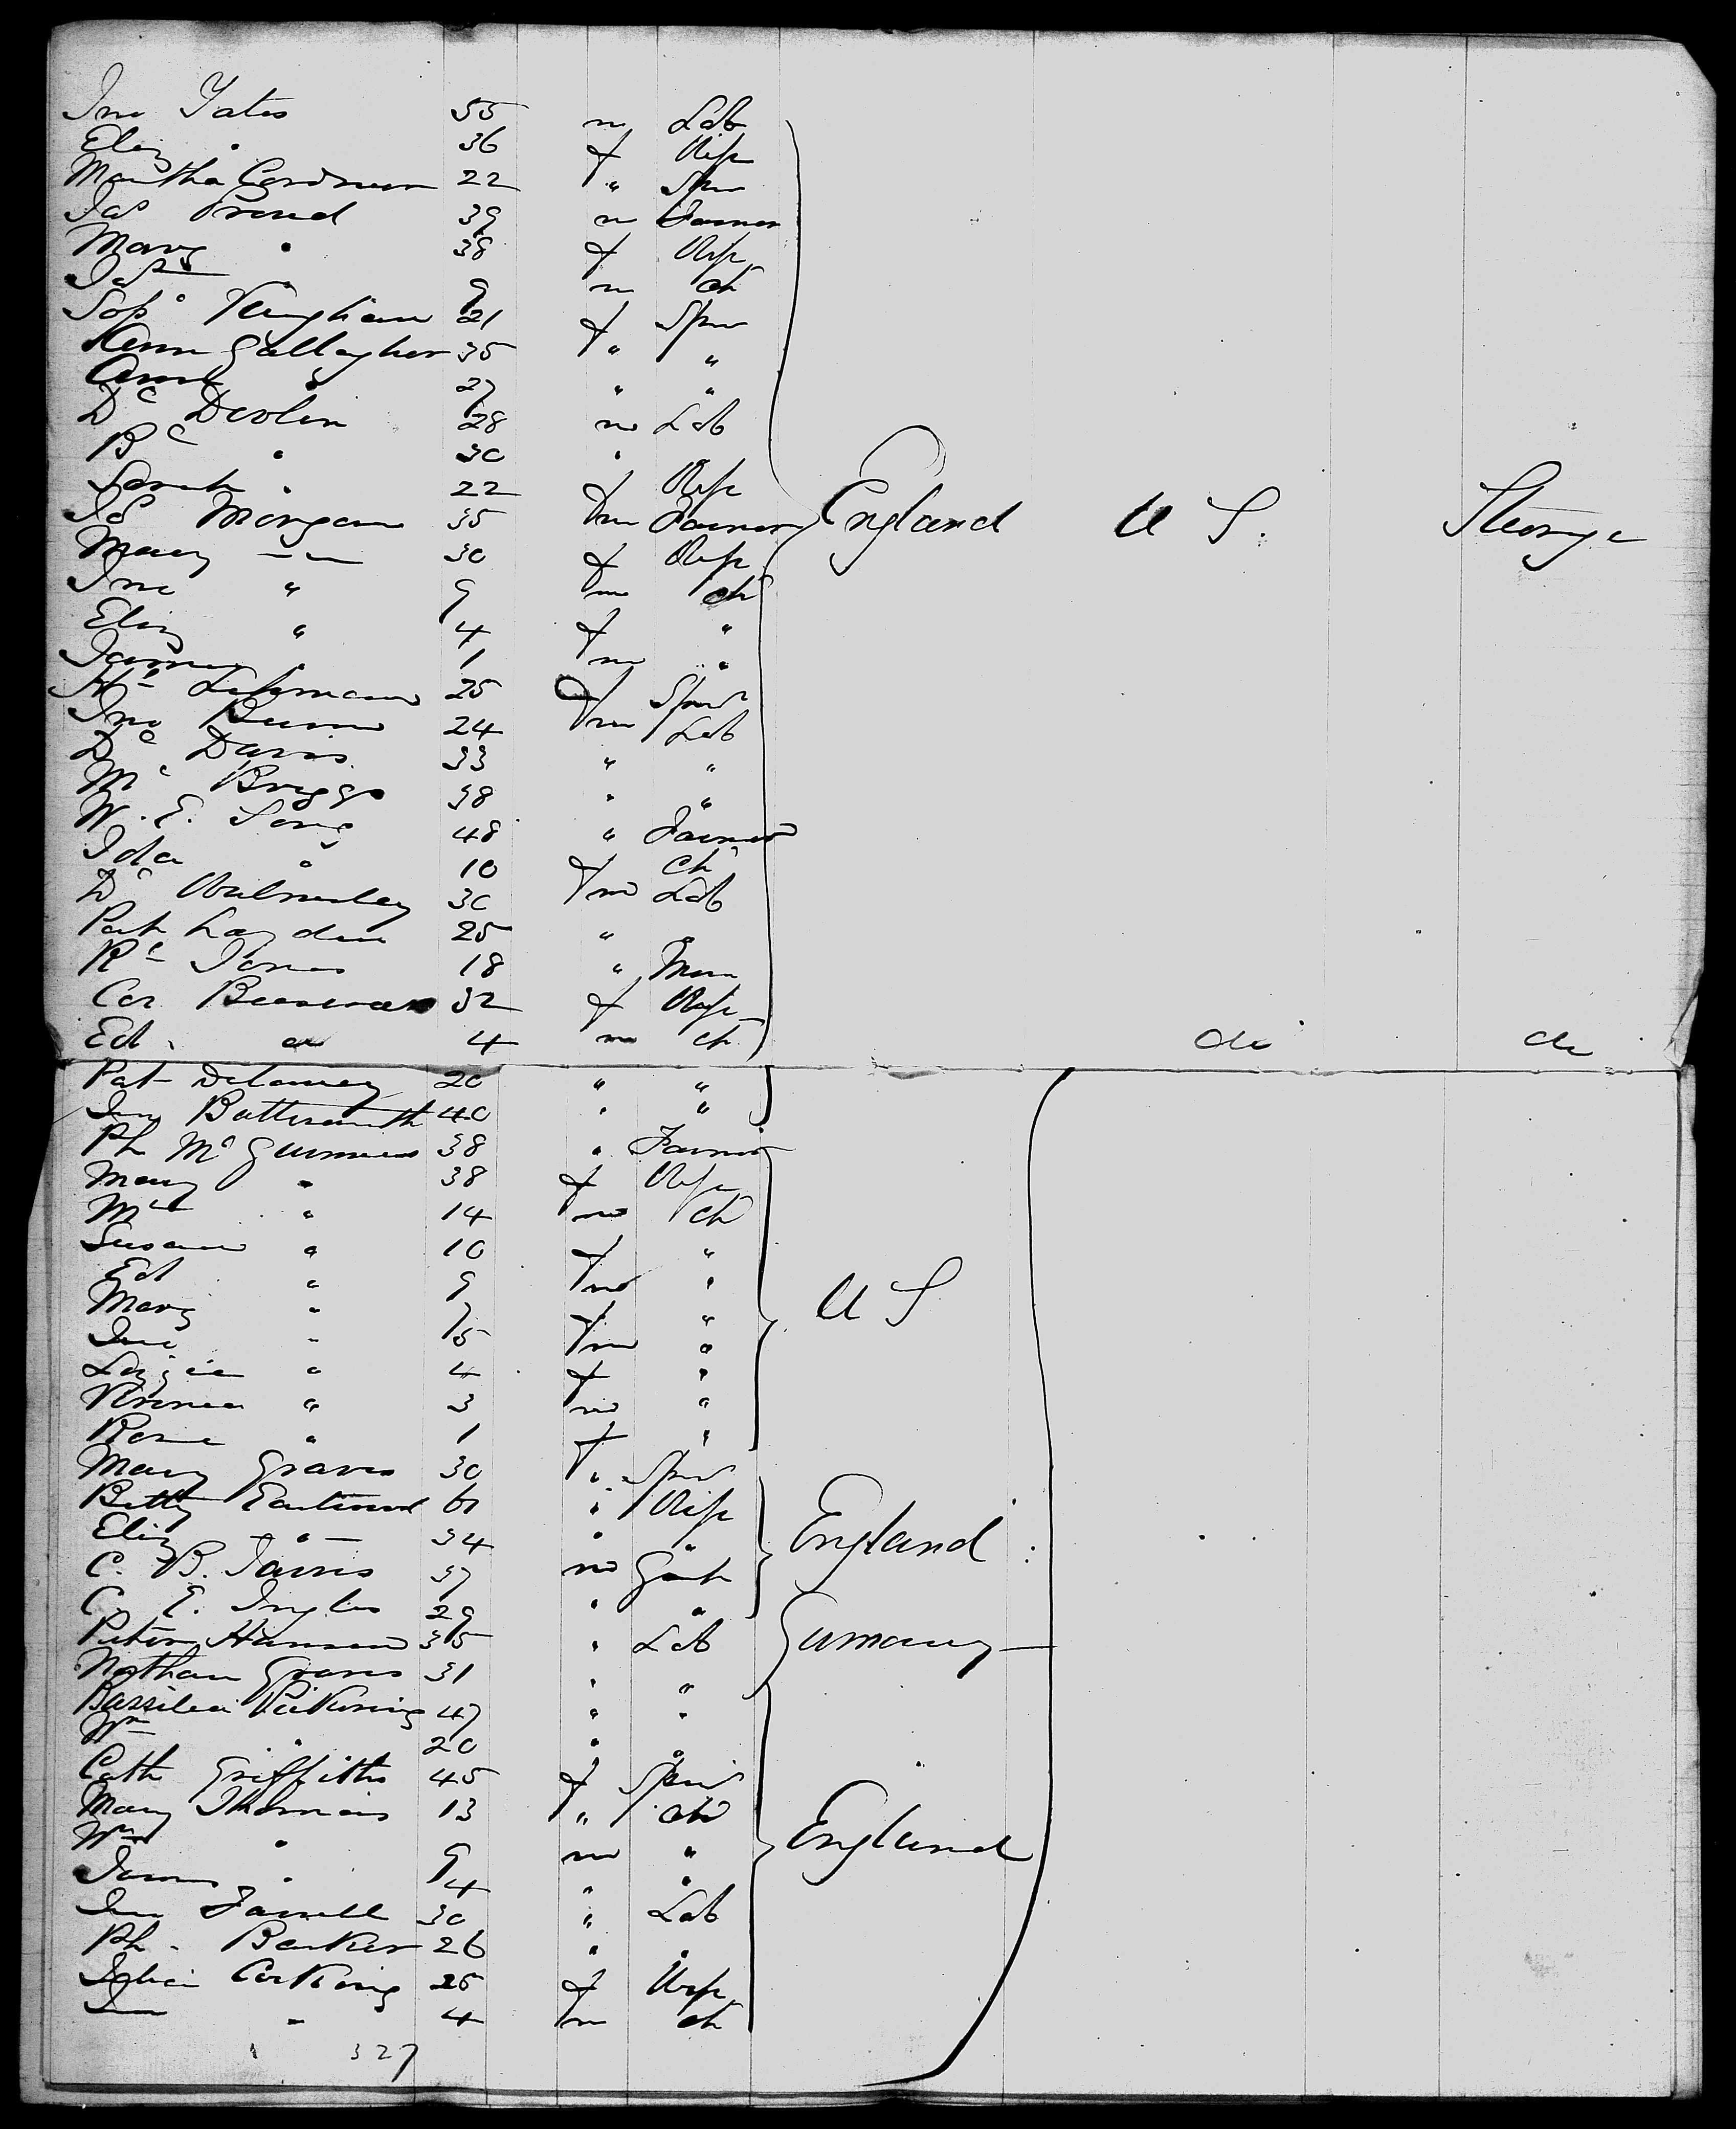 Jno Yates 55 m Lab
Eliz " 36 f Wife
Martha Cordner 22 " Spin
Jas Proud 39 m Farmer
Mary " 38 f Wife
Jas 9 m ch
Soph Vaughan 21 f Spin
Ann Gallagher 35 " "
Anne " 27 " "
D Devlin 28 m Lab
B " 30 "
Sarah " 22 f Wife
Js Morgan 35 m Farmer England U S. Steerage
Mary " 30 f Wife
Jno " 9 m ch
Eliz " 4 f "
James " 1 m "
25 f Spin
Jno Burns 24 m Lab
D Davis 33 " "
M Briggs 38 " "
W. E. Long 48 " Farmer
Ida " 10 f ch
D Walmsley 30 m Lab
Pat Layden 25 " "
R Jones 18 "
Car 32 f Wife
Ed " 4 m ch do do
Pat Delaney 20 " "
Jno Butterworth 40 " "
Ph McGuinness 38 " Farmer
Mary " 38 f Wife
" 14 m ch
Susan " 10 f "
Ed " 9 m "
Mary " 7 f " U S
Jno " 5 m "
Lizzie " 4 f "
" 3 m "
Rose " 1 f "
Mary Graves 30 " Spin
Betty Eastwood 61 " Wife
Eliz " 34 " " England
C. B. James 37 m Gent
C. E. Ingles 29 " "
Peter Hansen 35 " Lab Germany
Nathan Graves 31 " "
Bassilea Pickering 47 " "
Wm " 20 " "
Cath Griffiths 45 f Spin
Mary Thomas 13 " ch
Wm " 9 m " England
James " 4 " "
Jno Farrell 30 " Lab
Ph. Barker 26 " "
Julia Corking 25 f Wife
Jno " 4 m ch
327